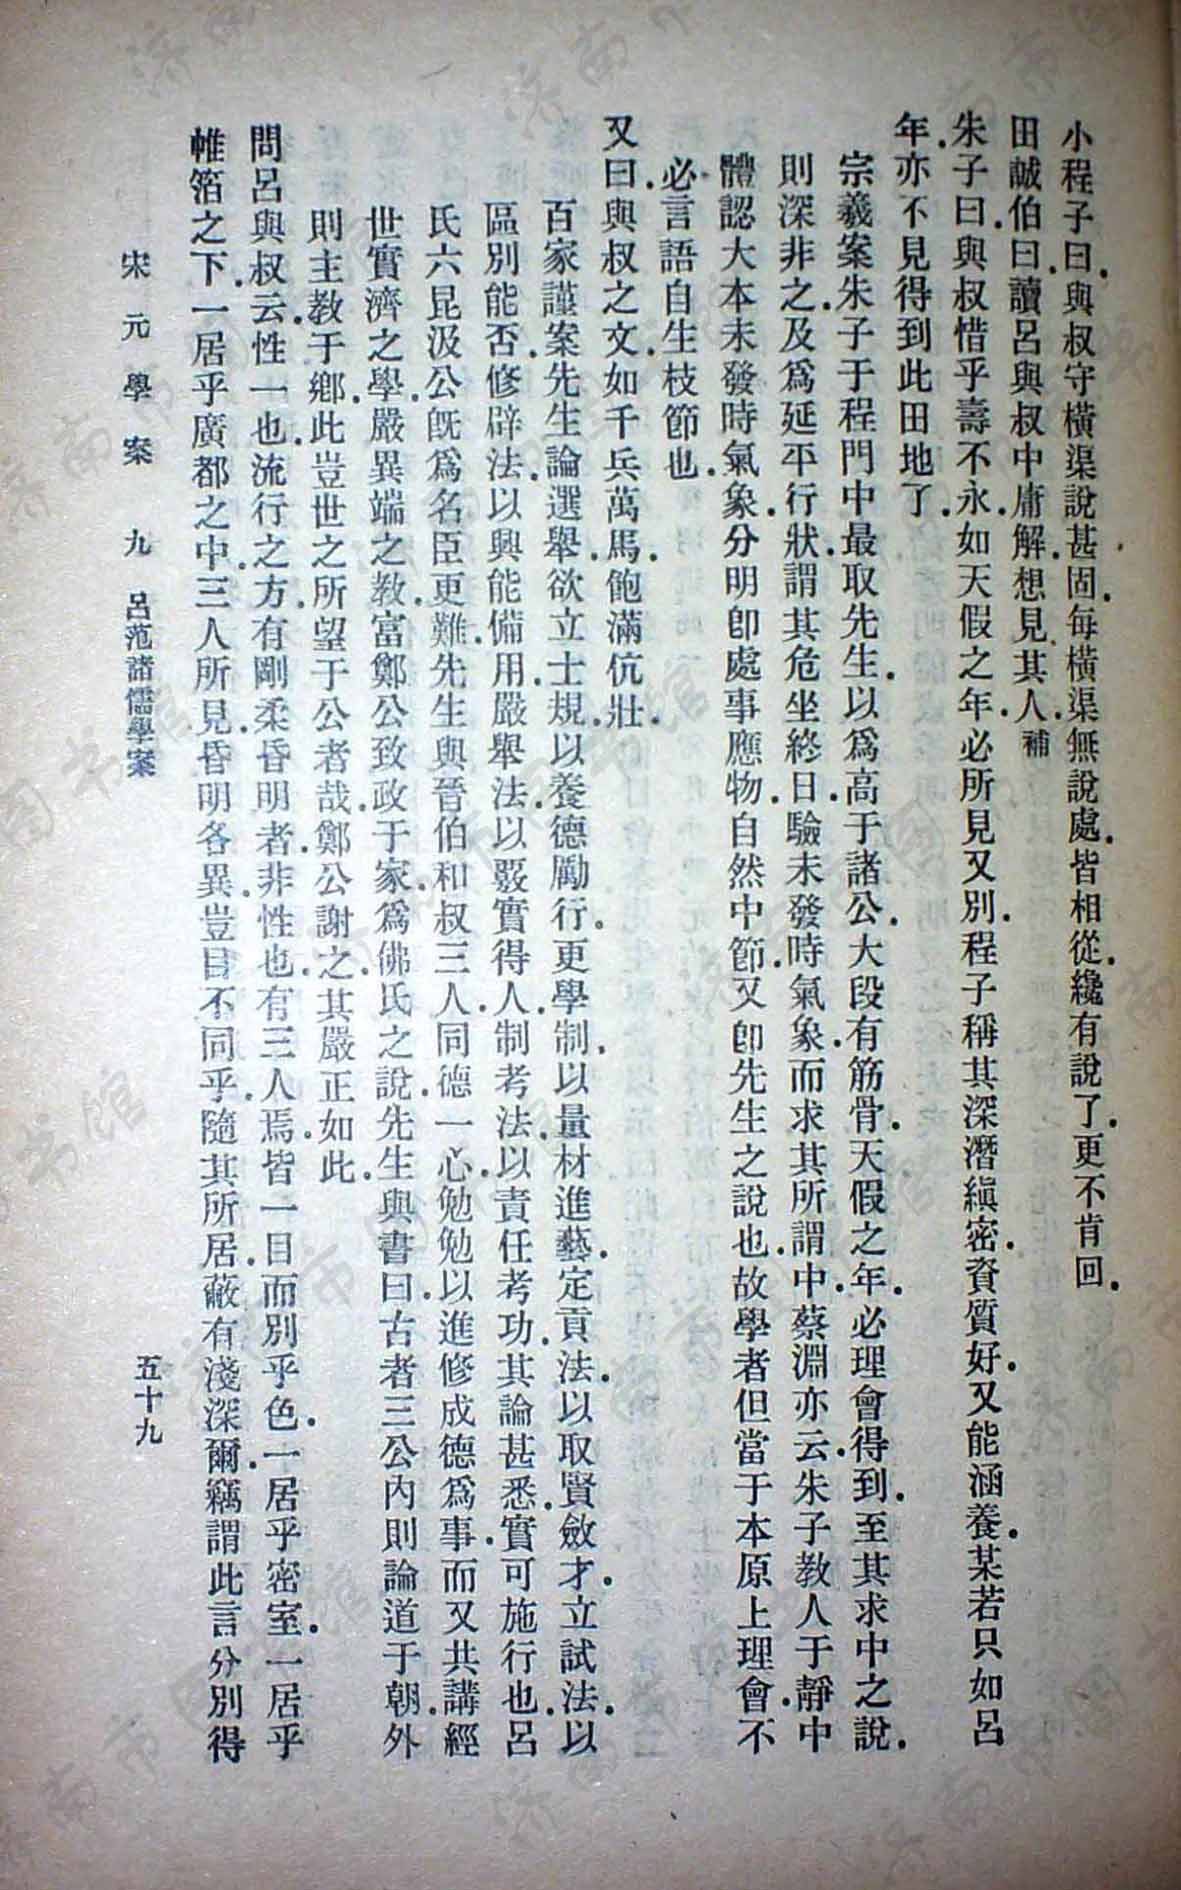 小程子曰.與叔守橫渠說甚固.每橫渠無說處.皆相從.纔有說了.更不肯回.
田誠伯曰.讀呂與叔中庸解.想見其人.補
朱子曰.與叔惜乎壽不永.如天假之年.必所見又別.程子稱其深潛縝密.資質好.又能涵養.某若只如呂
年.亦不見得到此田地了.
宗羲案朱子于程門中最取先生.以爲高于諸公.大段有筋骨.天假之年.必理會得到.至其求中之說.
則深非之.及爲延平行狀.謂其危坐終日.驗未發時氣象.而求其所謂中.蔡淵亦云.朱子教人于靜中
體認大本未發時氣象.分明卽處事應物.自然中節.又卽先生之說也.故學者但當于本原上理會.不
必言語自生枝節也.
又曰.與叔之文.如千兵萬馬.飽滿伉壯.
百家謹案先生論選舉.欲立士規.以養德勵行.更學制.以量材進藝.定貢法.以取賢斂才.立試法.以
區別能否.修辟法.以興能備用.嚴舉法.以覈實得人.制考法.以責任考功.其論甚悉.實可施行也.呂
氏六昆.汲公旣爲名臣.更難先生與晉伯和叔三人.同德一心.勉勉以進修成德爲事.而又共講經
世實濟之學.嚴異端之教.富鄭公致政于家.爲佛氏之說.先生與書曰.古者三公.內則論道于朝.外
則主教于鄉.此豈世之所望于公者哉.鄭公謝之.其嚴正如此.
問呂與叔云.性一也.流行之方.有剛柔昏明者.非性也.有三人焉.皆一目而別乎色.一居乎密室.一居乎
帷箔之下.一居乎廣都之中.三人所見.昏明各異.豈目不同乎.隨其所居.蔽有淺深爾.竊謂此言分別得
宋元學案 九 呂范諸儒學案 五十九